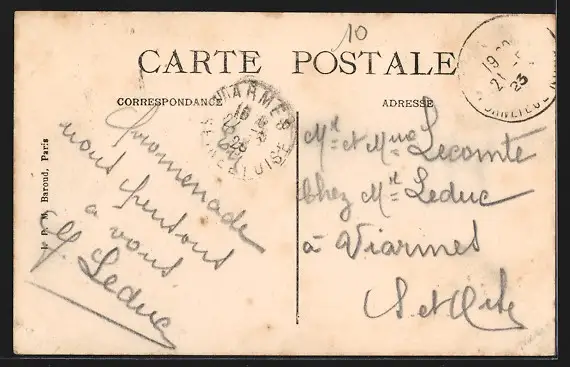 10
CARTE POSTALE
CORRESPONDANCE
ADRESSE
VIARMES
SEINE-&-OISE
19
21
23
Promenade
nous pensons
a vous
G. Leduc
Mr et Mme Lecomte
Chez Mr Leduc
à Viarmes
S et Oise
Baroud, Paris